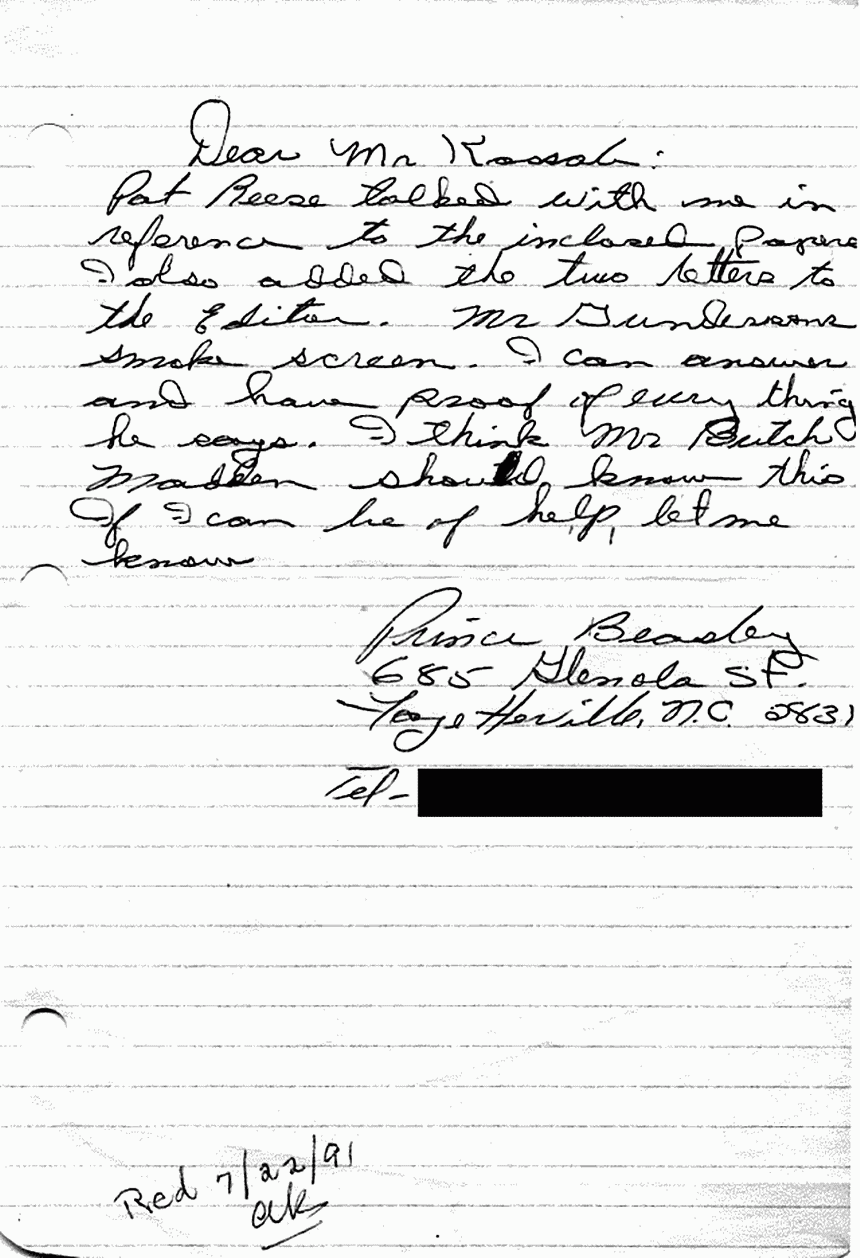 Dear Mr Kassab:
Pat Reese talked with me in
reference to the inclosed papers
I also added the two letters to
the Editor. Mr Gundersons
smoke screen. I can answer
and have proof of every thing
he says. I think Mr Butch
Madden should know this
If I can be of help, let me
know
Prince Beasley
685 Glenola St.
Fayetteville, N.C. 2831
Tel-
Rec'd 7/22/91